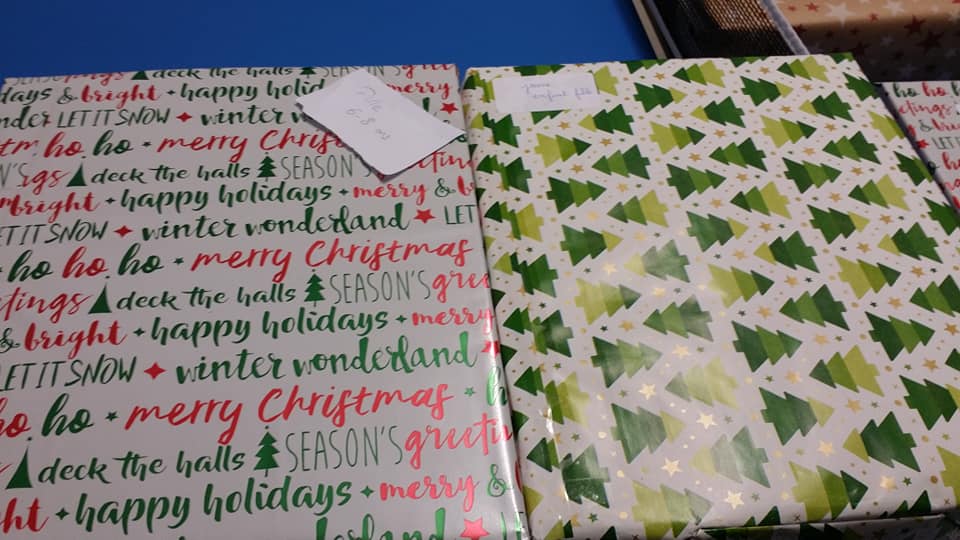 ngs deck the halls SEASON'S gree
days & bright happy holi merry
nder LET IT SNOW winter w
ho. ho merry Christ
gs deck the halls SEASON'S
bright happy holidays merry & b
ET IT SNOW winter wonderland LET
ho ho. ho merry Christmas
etings deck the halls SEASON'S gree
& bright happy holidays merry
LET IT SNOW winter wonderland
ho merry Christmas
deck the halls SEASON'S greeti
ht happy holidays merry &
Fille
6-8 ans
enfant fille
ho ho
etings
& b
LET I